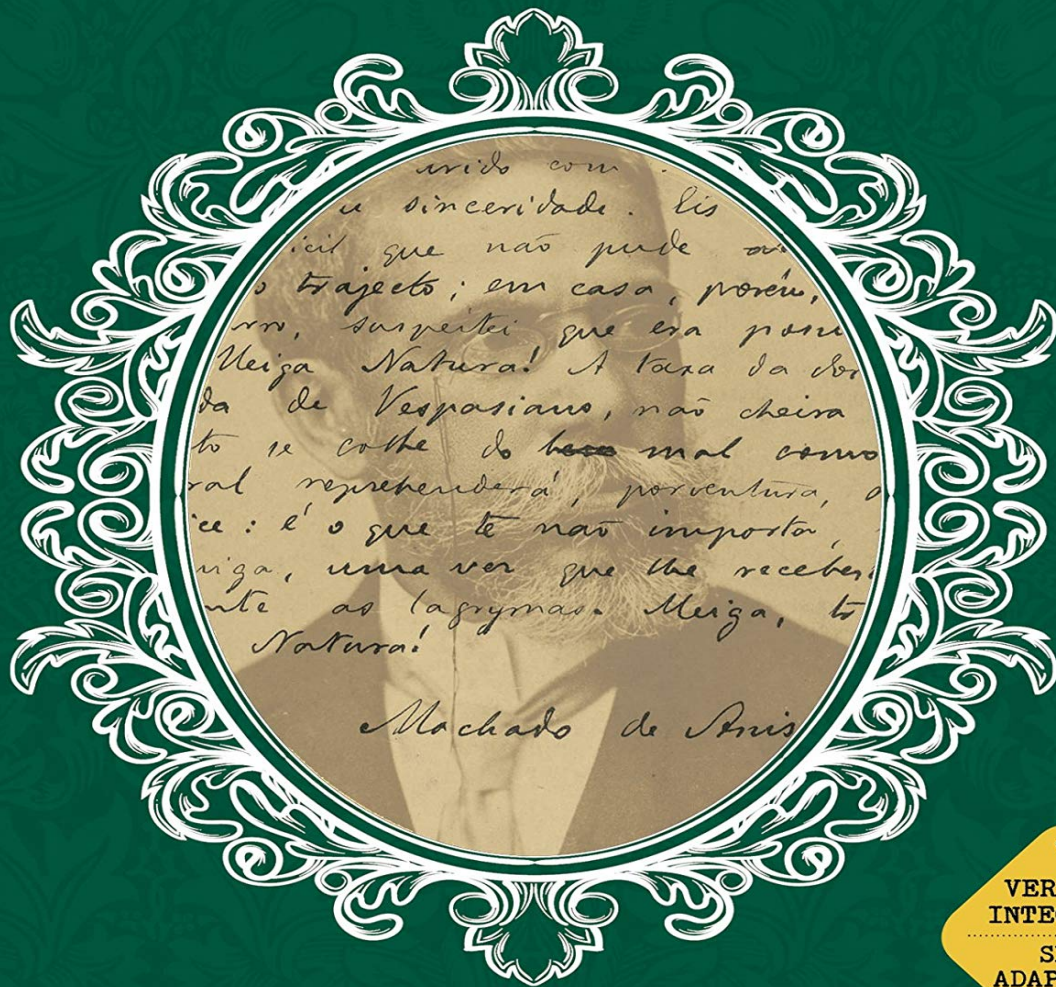 urido com
u sinceridade. Eis
icil que não pude
o trajecto; em casa, porém,
rro, suspeitei que era
Meiga Natura! A taxa da dor
da de Vespasiano, não cheira
to se colhe do bem mal como
ral reprehenderá, porventura, o
ce: é o que te não importa,
iga, uma vez que lhe receber
nte as lagrymas. Meiga, t
Natura!
Machado de Assis
VER
INTE
S
ADAP